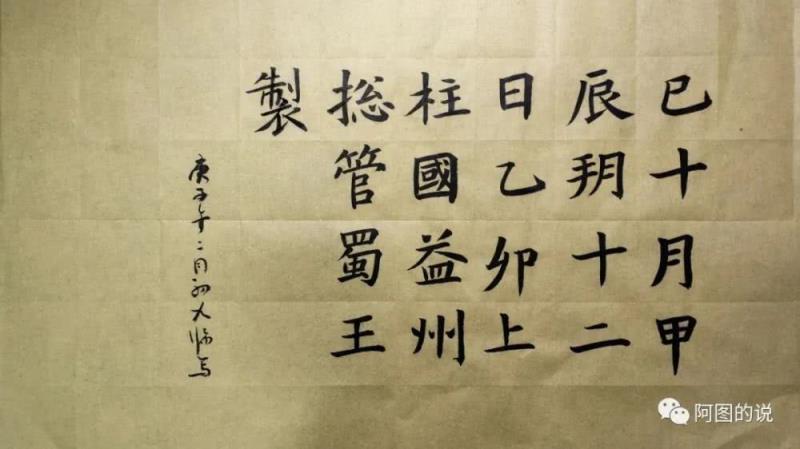 巳十月甲
辰朔十二
日乙卯上
柱國益州
捴管蜀王
製
庚子年二月初八临写
阿图的说